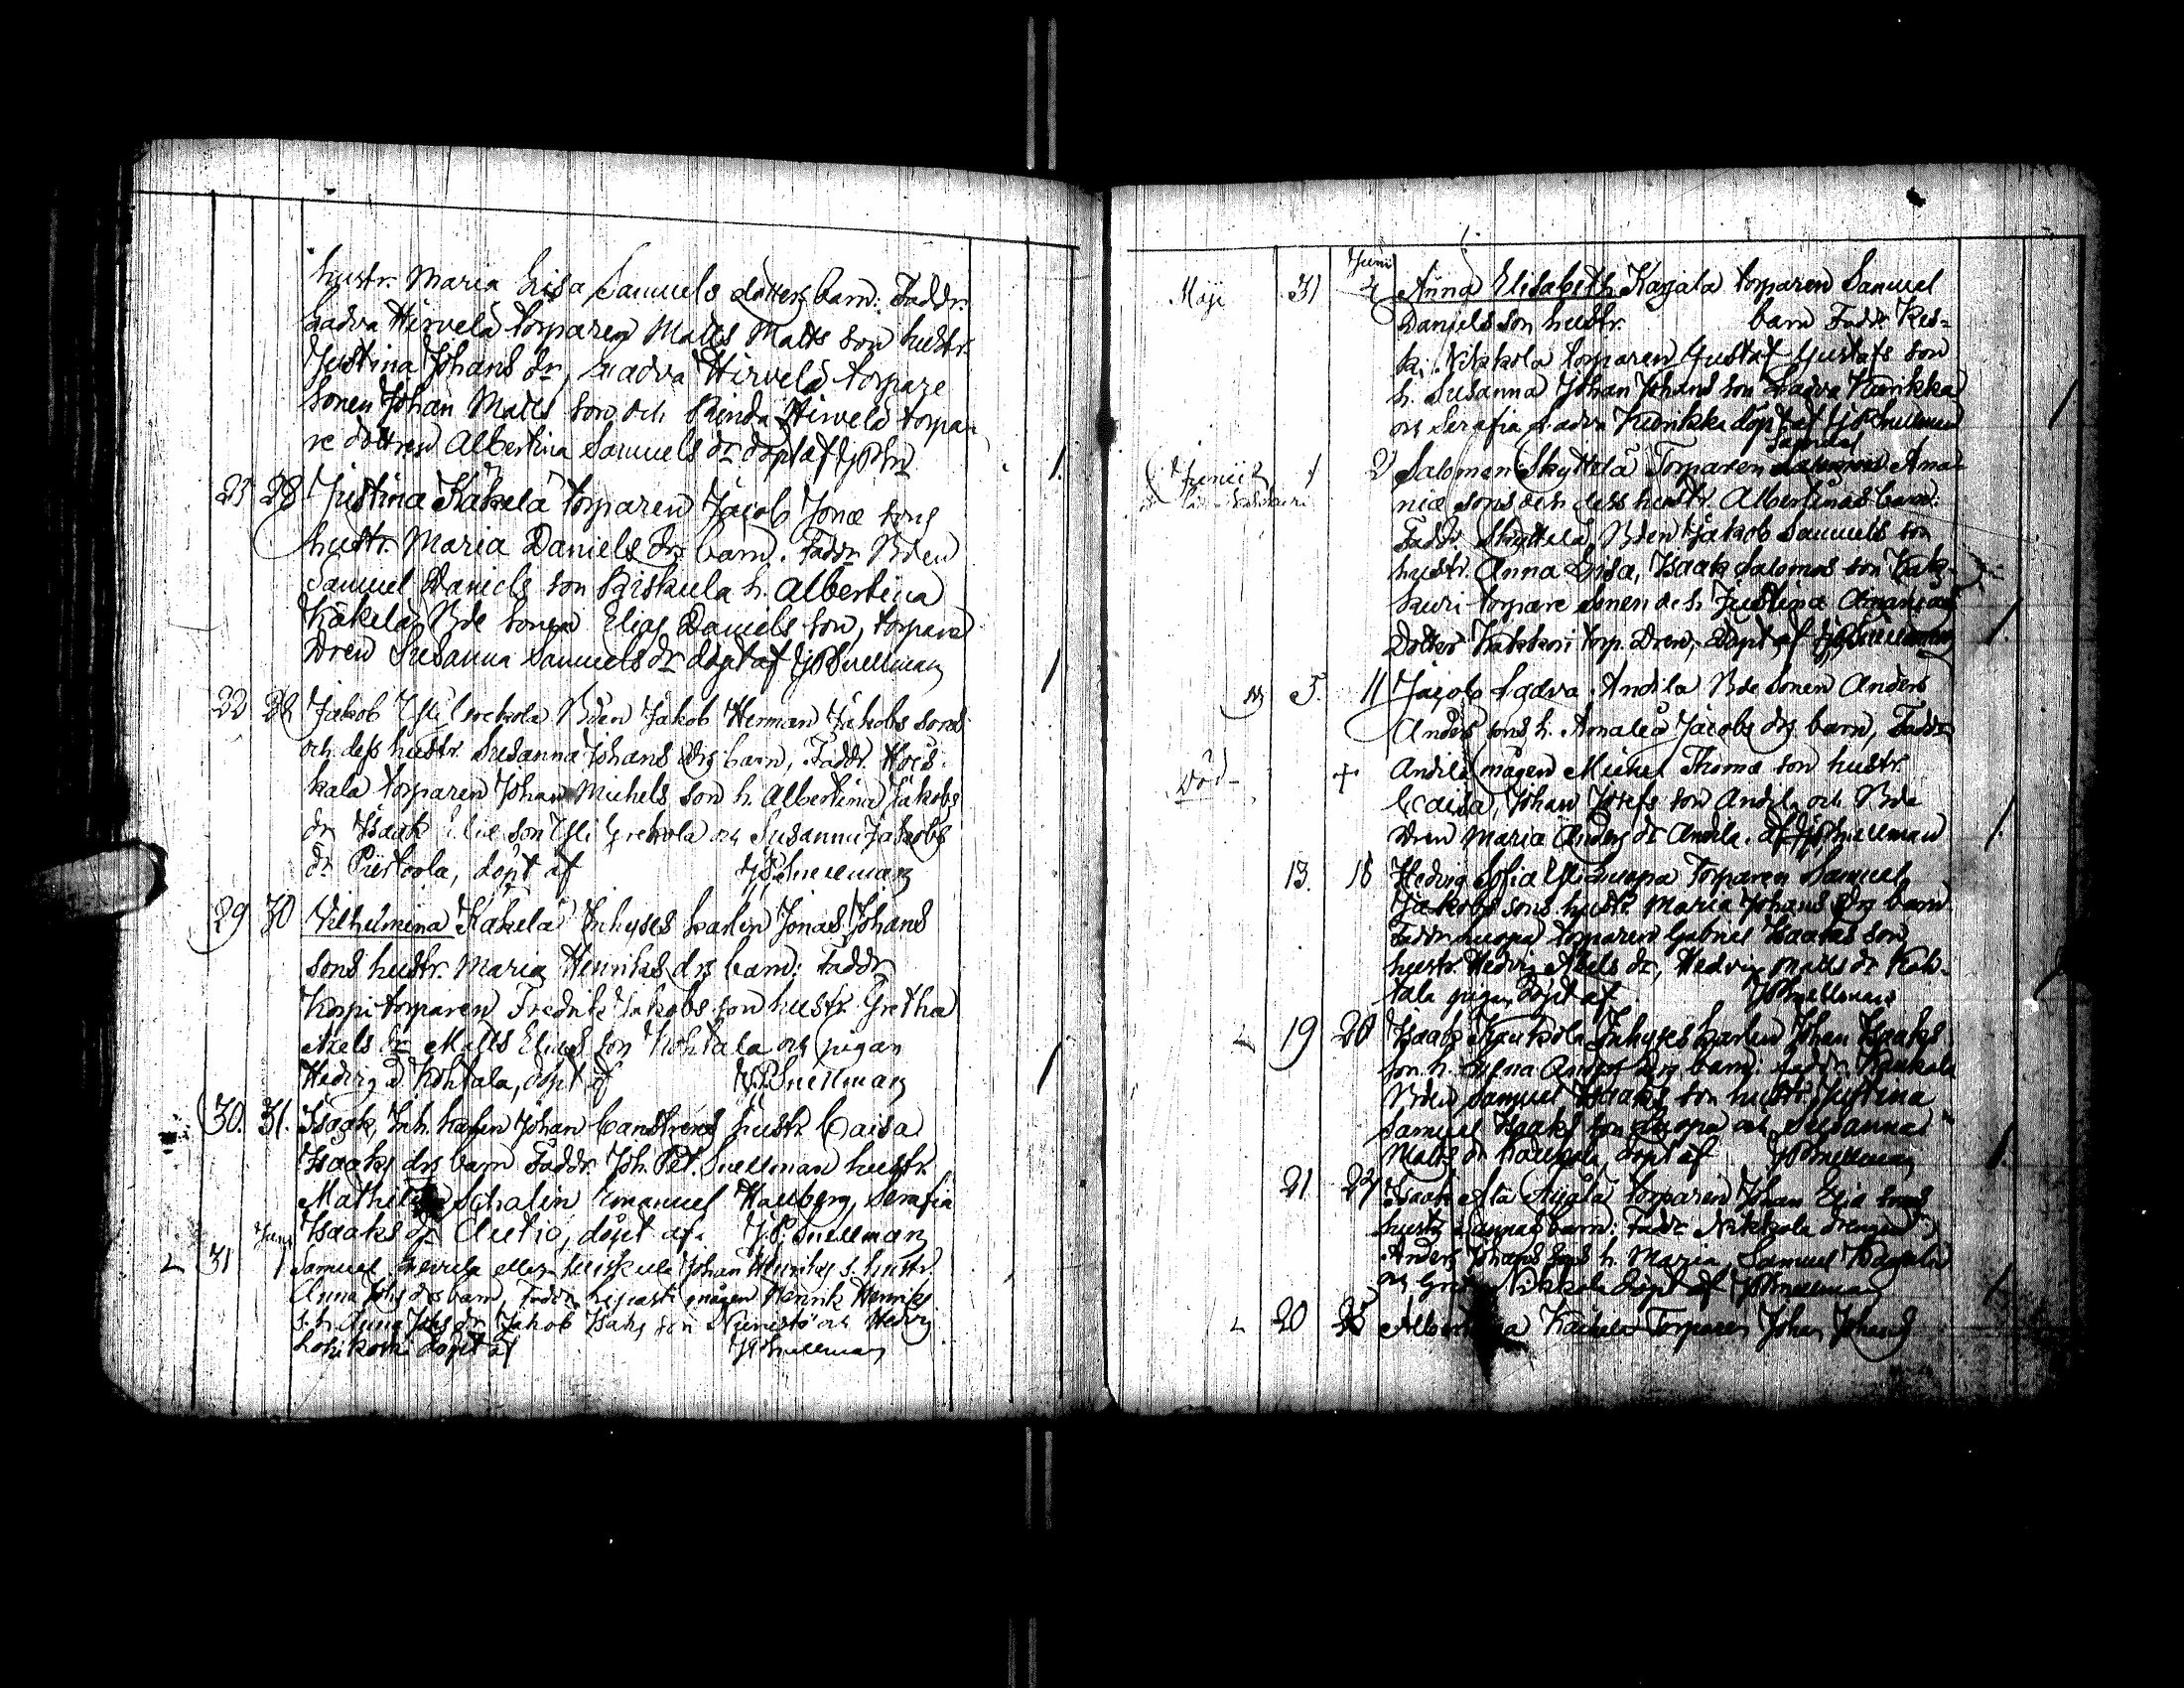 hustr. Maria Lisa Samuels dotters barn: Faddr.
Ladva Hirvelä torparen Matts Matts son hustr.
Justina Johans dr, Ladva Hirvelä torpare
sonen Johan Matts son och Rinda Hirvelä torpa-
re dottren Albertina Samuels dr döpt af
25 28 Justina Käkelä torparen Jacob Jonæ sons
hustr. Maria Daniels drs barn. Faddr. Bden
Samuel Daniels son Kiskula h. Albertina
Käkelä, Bde sonen Elias Daniels son, torpare
dren Susanna Samuels dr döpt af JPSnellman
22 28 Jakob Yli Bden Jakob Herman Jakobs sons
och dess hustr. Susanna Johans drs barn, Faddr.
kala torparen Johan Michels son h. Albertina Jakobs
dr Isaak Eliæ son Yli och Susanna Jakobs
dr döpt af JPSnellman
29 30 Vilhelmina Käkelä Inhyses karlen Jonas Johans
sons hustr. Maria Henriks drs barn: Faddr
Korpi torparen Fredrik Jakobs son hustr. Gretha
Axels dr Matts Elias son Kohtala och pigan
Hedvig d. Kohtala, döpt af J.P.Snellman
30. 31. Isaak, Inh. karlen Johan Canstrens hustr. Caisa
Isaaks drs barn Faddr. Joh. Pet. Snellman hustr.
Mathilda Schalin Emanuel Hallberg, Serafia
Isaaks dr Autio, döpt af. J.P. Snellman
Juni
31 1 Samuel eller Kiiskilä Johan Henriks s. hustr.
Anna Johs drs barn, Faddr. mågen Henrik Henriks
s. h. Anna Johs dr Jakob Isaks son och Hedvig
döpt af JPSnellman
Maji 31 Juni 4 Anna Elisabeth Kagala torparen Samuel
Daniels son hustr. barn Faddr. Kes-
ki Nikkola torparen Gustaf Gustafs son
h. Susanna Johan Johans son Ladva Kurikka
och Serafia Ladva Kurikka döpt af JPSnellman
Samuel
Junii 1 2 Saloman Skyttelä Torparen Ana-
niæ sons och dess hustr. Albertinas barn.
Faddr. Skyttelä Bden Jakob Samuels son
hustr. Anna Lisa, Isaak Salomos son Kak-
kuri torpare sonen och Justina Ananias
dotter Kakkuri torp. dren, döpt af JPSnellman
5. 11 Jacob Ladva Andila Bde sonen Anders
Anders sons h. Amalia Jacobs drs barn, Faddr
Död + Andila mågen Michel Thomæ son hustr.
Caisa, Johan Josefs son Andila och Bde
dren Maria Anders dr Andila. af JPSnellman
13. 18 Hedvig Sofia Yli Luopa Torparen Samuel
Jakobs sons hustr. Maria Johans drs barn
Faddr. Luopa torparen Gabriel Isaaks son
hustr. Hedvig Axels dr, Hedvig Matts dr Koh-
tala pigan, döpt af JPSnellman
19 20 Isaak Kaukola Inhyses karlen Johan Isaaks
son h. Anders drs barn. Faddr. Kaukola
Bden Samuel Isaaks son hustr. Justina
Samuel Isaaks son Luopa och Susanna
Matts dr Kaukola, döpt af JPSnellman
21 24 Isaak Ala torparen Johan Eliæ sons
hustr. Sannas barn: Faddr. Nikkola drengen
Anders Johans sons h. Maria, Samuel Kagala
och Nikkola döpt af JPSnellman
20 25 Käkelä Torparen Johan Johans